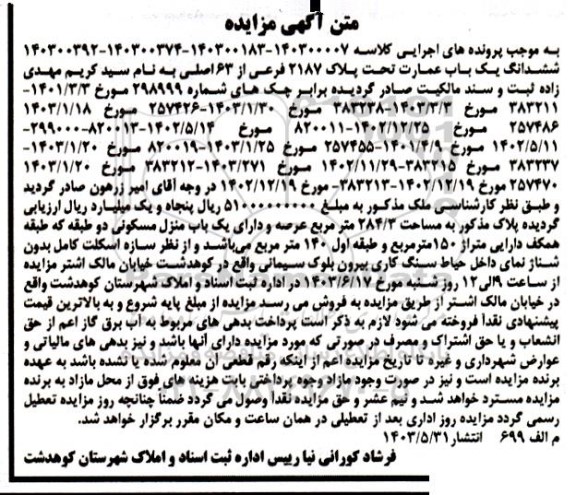 متن آگهی مزایده
به موجب پرونده های اجرایی کلاسه ۱۴۰۳۰۰۰۰۷-۱۴۰۳۰۰۱۸۳-۱۴۰۳۰۰۳۷۴-۱۴۰۳۰۰۳۹۲
ششدانگ یک باب عمارت تحت پلاک ۲۱۸۷ فرعی از ۶۳ اصلی به نام سید کریم مهدی
زاده ثبت و سند مالکیت صادر گردیده برابر چک های شماره ۲۹۸۹۹۹ مورخ ۱۴۰۱/۳/۳-
۳۸۳۲۱۱ مورخ ۱۴۰۳/۲/۴-۳۸۳۲۳۸ مورخ ۱۴۰۳/۱/۳۰-۲۵۷۴۲۶ مورخ ۱۴۰۳/۱/۱۸
۲۵۷۴۸۶ مورخ ۱۴۰۲/۱۲/۲۵-۸۲۰۰۱۱ مورخ ۱۴۰۲/۵/۱۴-۸۲۰۰۱۳-۲۹۹۰۰۰-
۱۴۰۲/۵/۱۱ مورخ ۱۴۰۱/۴/۹-۲۵۷۴۵۵ مورخ ۱۴۰۳/۱/۲۵-۸۲۰۰۱۹ مورخ ۱۴۰۳/۱/۲۰-
۳۸۳۲۳۷ مورخ ۱۴۰۲/۱۱/۲۹-۳۸۲۲۱۵ مورخ ۱۴۰۳/۲۷۱-۳۸۳۲۱۲ مورخ ۱۴۰۳/۱/۲۰
۲۵۷۴۷۰ مورخ ۱۴۰۲/۱۲/۱۹-۳۸۳۲۱۳- مورخ ۱۴۰۲/۱۲/۱۹ در وجه آقای امیر زرهون صادر گردید
و طبق نظر کارشناسی ملک مذکور به مبلغ ۵۱۰۰۰۰۰۰۰۰۰ ریال پنجاه و یک میلیارد ریال ارزیابی
گردیده پلاک مذکور به مساحت ۲۸۴/۳ متر مربع عرصه و دارای یک باب منزل مسکونی دو طبقه که طبقه
همکف دارایی متراژ ۱۵۰ مترمربع و طبقه اول ۱۴۰ متر مربع می‌باشد و از نظر سازه اسکلت کامل بدون
شناژ نمای داخل حیاط سنگ کاری بیرون بلوک سیمانی واقع در کوهدشت خیابان مالک اشتر مزایده
از ساعت ۹الی ۱۲ روز شنبه مورخ ۱۴۰۳/۶/۱۷ در اداره ثبت اسناد و املاک شهرستان کوهدشت واقع
در خیابان مالک اشتر از طریق مزایده به فروش می رسد مزایده از مبلغ پایه شروع و به بالاترین قیمت
پیشنهادی نقداً فروخته می شود لازم به ذکر است پرداخت بدهی های مربوط به آب برق گاز اعم از حق
انشعاب و یا حق اشتراک و مصرف در صورتی که مورد مزایده دارای آنها باشد و نیز بدهی های مالیاتی و
عوارض شهرداری و غیره تا تاریخ مزایده اعم از اینکه رقم قطعی آن معلوم شده یا نشده باشد به عهده
برنده مزایده است و نیز در صورت وجود مازاد وجوه پرداختی بابت هزینه های فوق از محل مازاد به برنده
مزایده مسترد خواهد شد و نیم عشر و حق مزایده نقداً وصول می گردد ضمناً چنانچه روز مزایده تعطیل
رسمی گردد مزایده روز اداری بعد از تعطیلی در همان ساعت و مکان مقرر برگزار خواهد شد.
م الف ۶۹۹ انتشار ۱۴۰۳/۵/۳۱
فرشاد کورانی نیا رییس اداره ثبت اسناد و املاک شهرستان کوهدشت